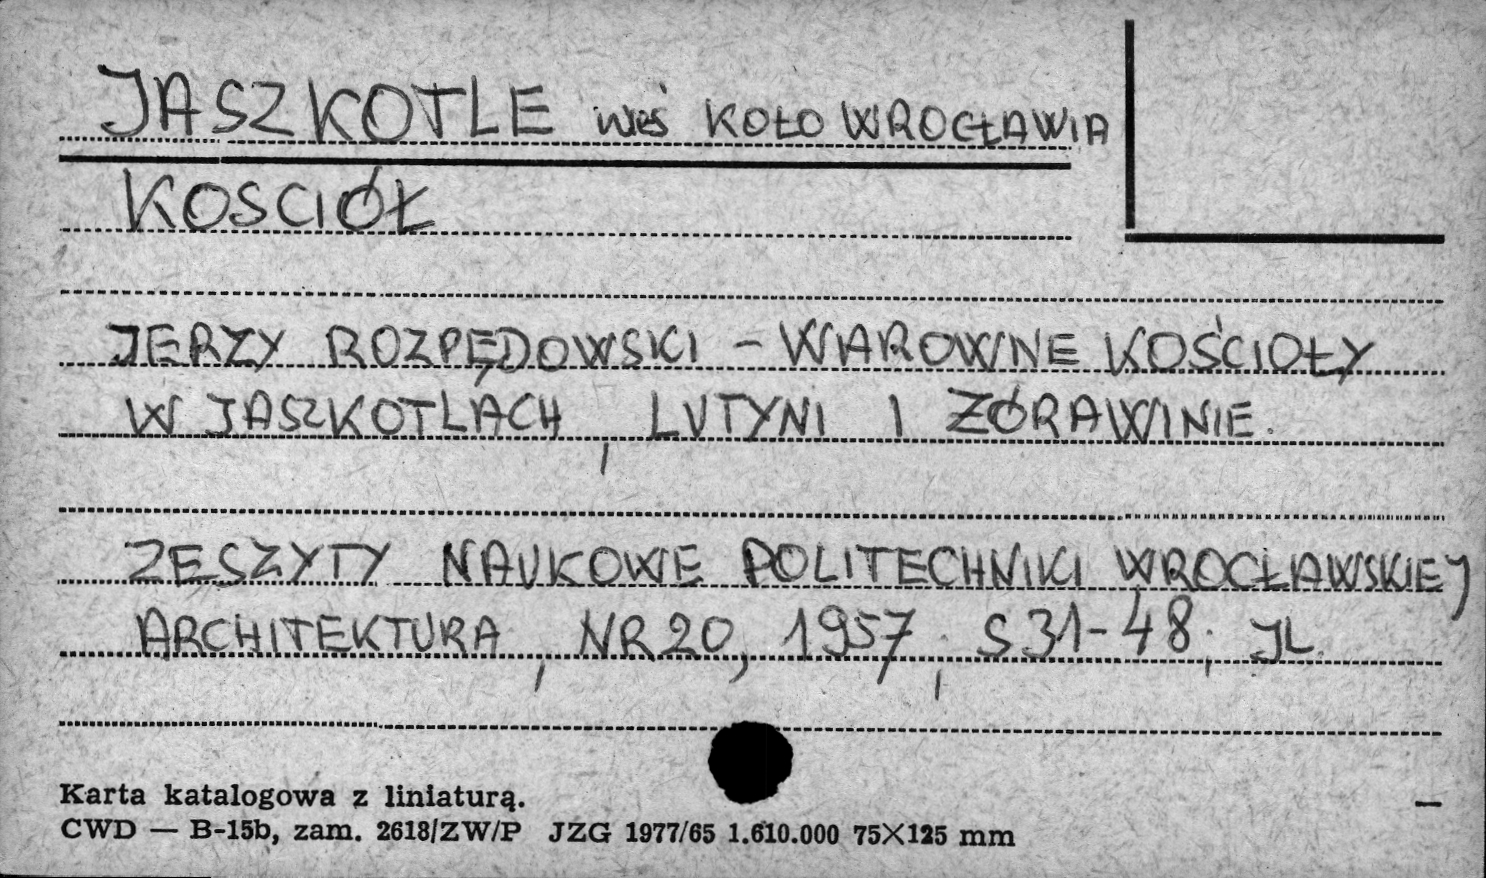 JASZKOTLE wieś KOŁO WROCŁAWIA
KOSCIÓŁ
JERZY ROZPĘDOWSKI – WAROWNE KOŚCIOŁY
W JASZKOTLACH, LUTYNI I ŻÓRAWINIE.
ZESZYTY NAUKOWE POLITECHNIKI WROCŁAWSKIEJ
ARCHITEKTURA, NR 20, 1957; S 31-48; JL.
Karta katalogowa z liniaturą.
CWD — B-15b, zam. 2618/ZW/P JZG 1977/65 1.610.000 75×125 mm